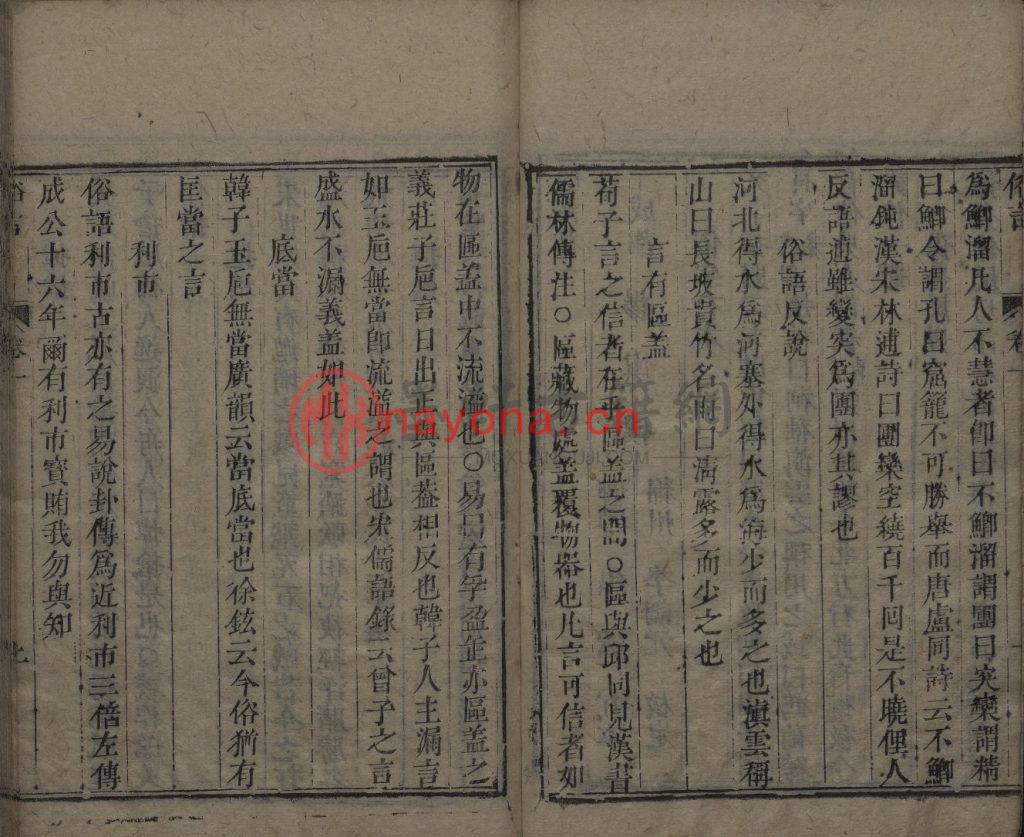 俗言
卷一
為鯽溜凡人不慧者卽曰不鯽溜謂團曰突欒謂精
曰鯽令謂孔曰窟籠不可勝舉而唐盧同詩云不鯽
溜鈍漢宋林逋詩曰團欒空繞百千回是不曉俚人
反語遁雖變突為團亦其謬也
俗語反說
河北得水為河塞外得水為海少而多之也滇雲稱
山曰長坡貴竹名雨曰淸露多而少之也
言有區蓋
荀子言之信者在乎區蓋之間○區與邱同見漢書
儒林傳注○區藏物處蓋覆物器也凡言可信者如
物在區盖中不流溢也○易曰有孚盈缶亦區盖之
義莊子巵言日出正與區葢相反也韓子人主漏言
如玉巵無當卽流溢之謂也宋儒語錄云曾子之言
盛水不漏義盖如此
底當
韓子玉巵無當廣韻云當底當也徐鉉云今俗猶有
匡當之言
利市
俗語利市古亦有之易說卦傳為近利市三倍左傳
成公十六年爾有利市寶賄我勿與知
俗言
卷一
nayona.cn